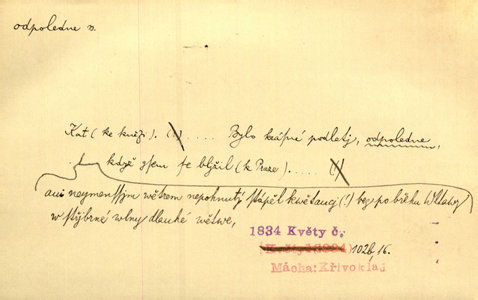 odpoledne n.
Kat (ke kněž). (.) .... Bylo krásné podletj, odpoledne,
když gsem se bljžil (k Praze).... (.)
ani neymenssjm wětrem nepohnutý stápěl kwětaucý (?) bez po břehu Wltawy
w stýbrné wlny dlauhé wětwe,
1834 Květy č.
(Květy 1834) 102b, 16.
Mácha: Křivoklad